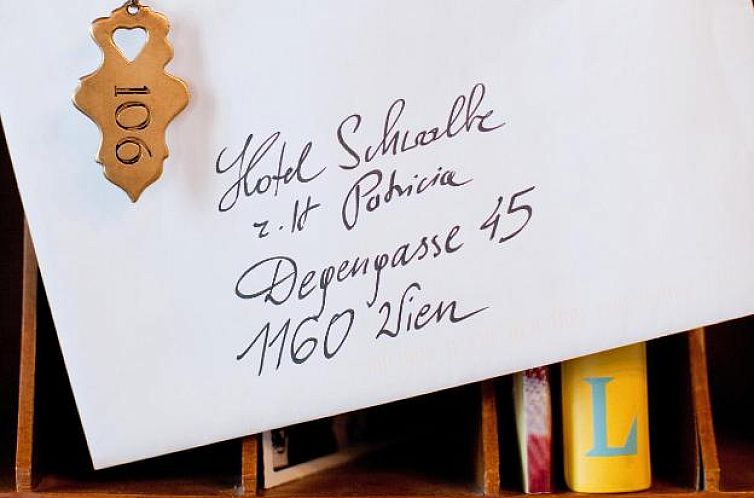 106
Hotel Schwalbe
z.H Patricia
Degengasse 45
1160 Wien
L